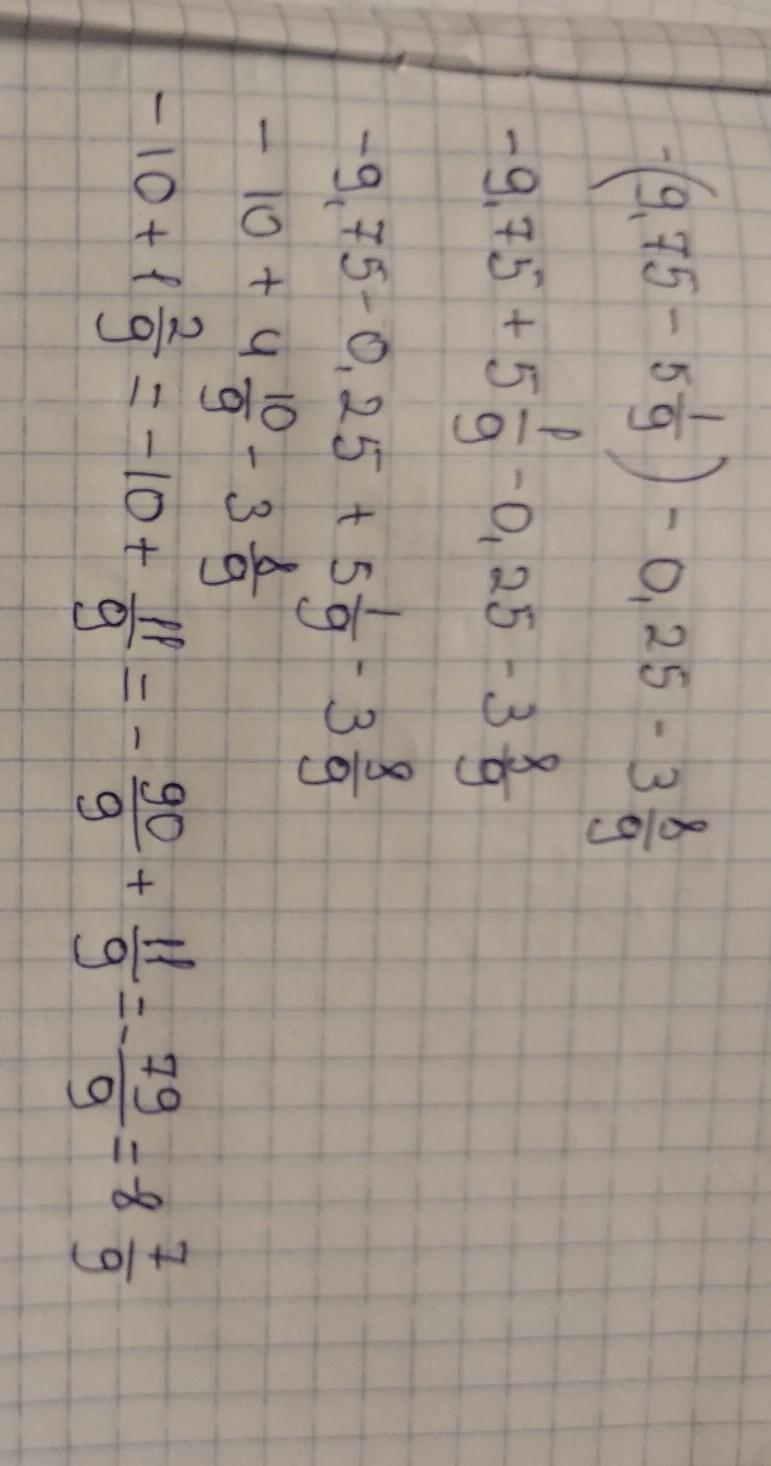 -(9,75 - 5 1/9) - 0,25 - 3 8/9
-9,75 + 5 1/9 - 0,25 - 3 8/9
-9,75 - 0,25 + 5 1/9 - 3 8/9
- 10 + 4 10/9 - 3 8/9
- 10 + 1 2/9 = - 10 + 11/9 = - 90/9 + 11/9 = - 79/9 = 8 7/9